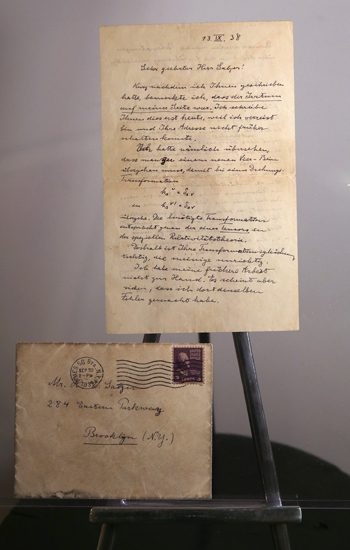 13. IX. 38
Sehr geehrter Herr Salzer!
Kurz nachdem ich Ihnen geschrieben
hatte, bemerkte ich, dass der Irrtum
auf meiner Seite war. Ich schreibe
Ihnen dies erst heute, weil ich verreist
bin und Ihre Adresse nicht früher
erhalten konnte.
Ich hatte nämlich übersehen,
dass man zu einem neuen Vier-Bein
übergehen muss, damit bei einer Drehungs-
Transformation
in
übergehe. Die benötigte Transformation
entspricht genau der eines Tensors in
der speziellen Relativitätstheorie.
Deshalb ist Ihre Transformationsgleichung
richtig, die meinige unrichtig.
Ich habe meine frühere Arbeit
nicht zur Hand. Es scheint aber
dass ich dort denselben
Fehler gemacht habe.
Mr. Salzer
284 Eastern Parkway
Brooklyn (N.Y.)